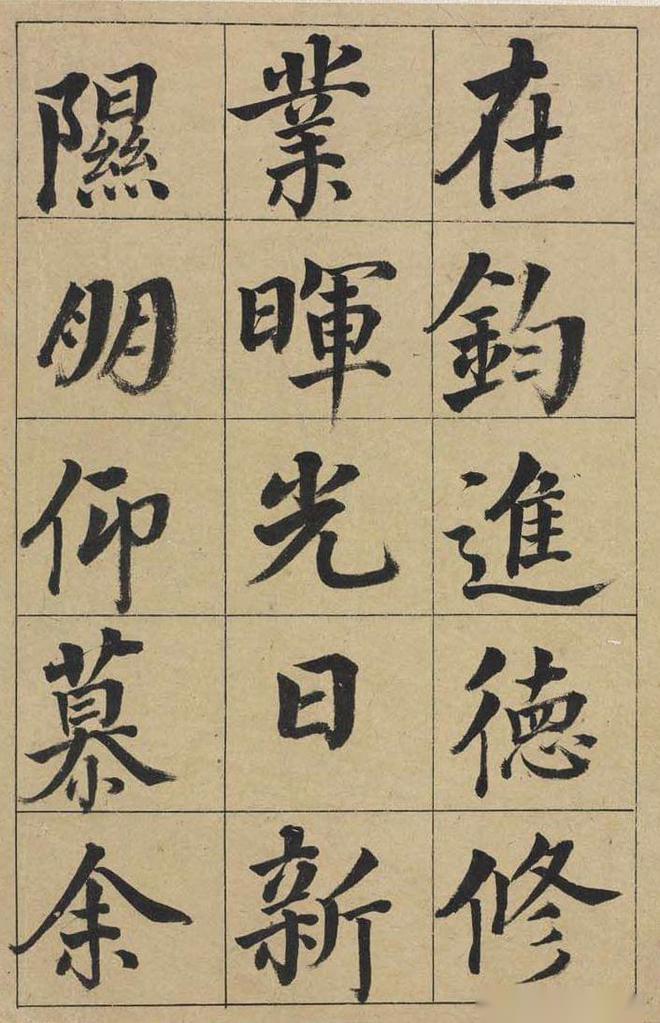 在鈞進德修
業暉光日新
隰朋仰慕余